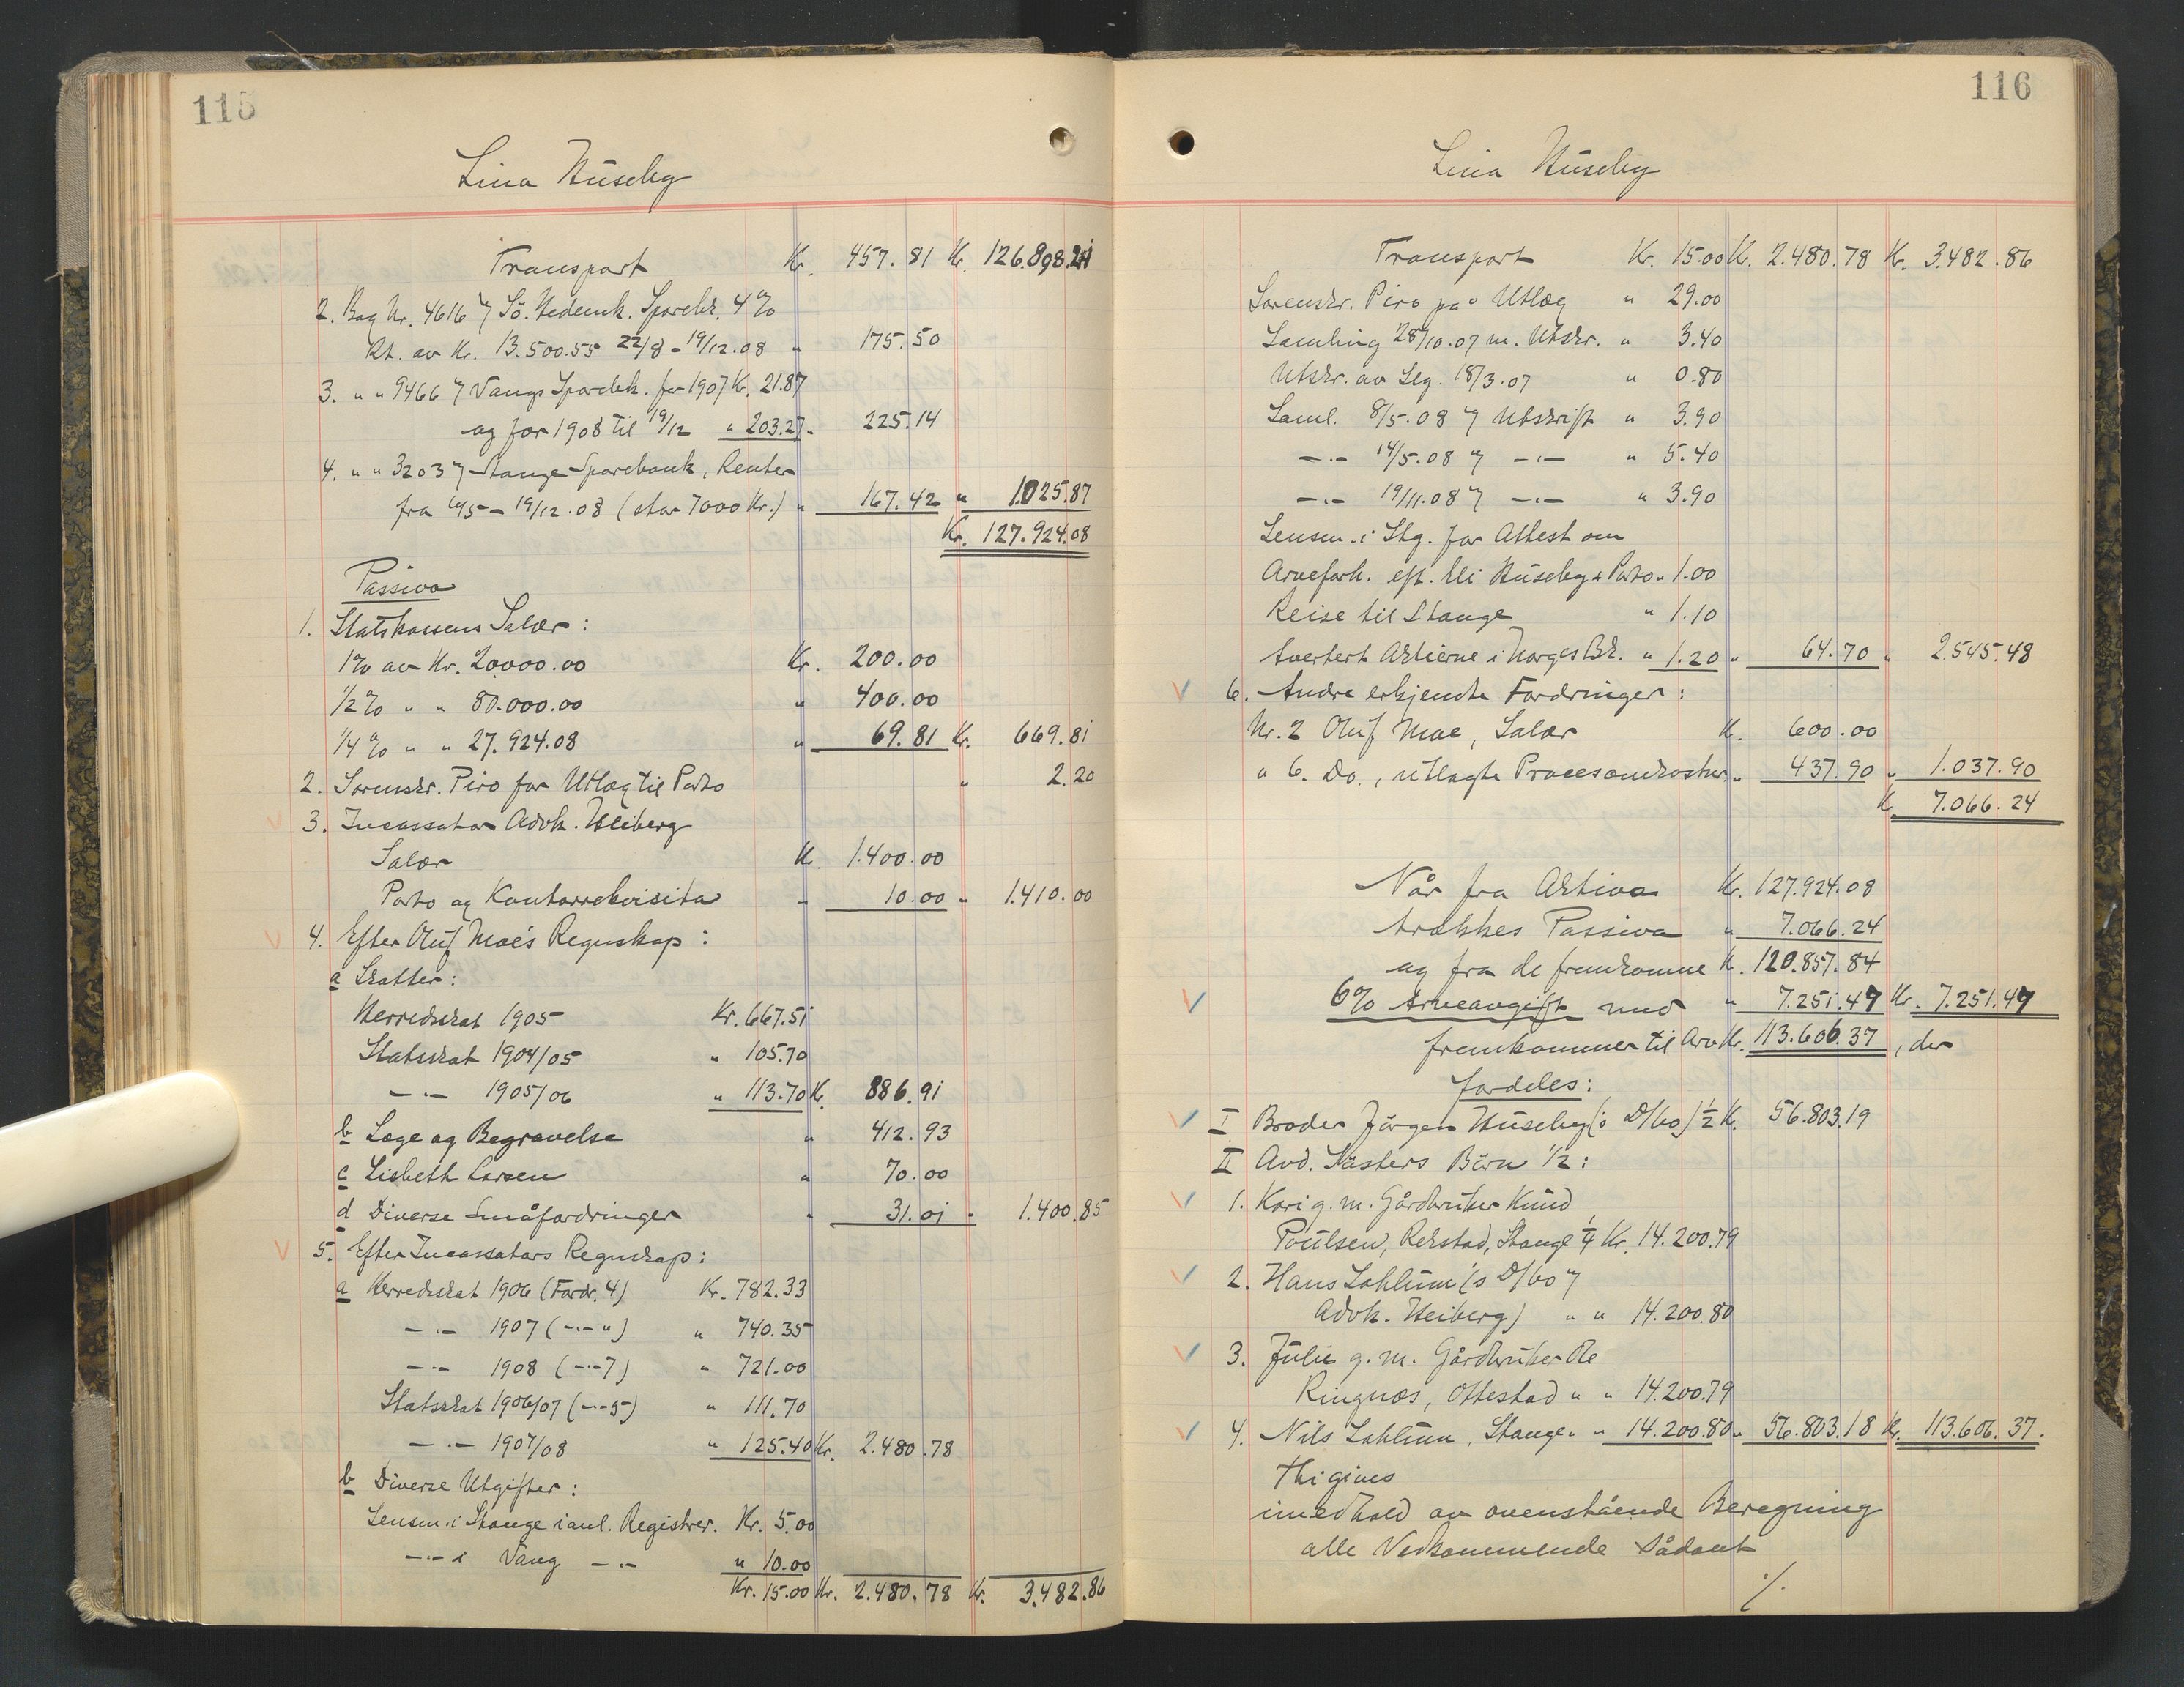 115
Lina Huseby
Transport Kr. 457.81 Kr. 126.898.21
2. Bog Nr. 4616 i Sö. Hedemk. Sparebk. 4%
Rt. av Kr. 13.500.55 22/8 - 19/12.08 " 175.50
3. " " 9466 i Vangs Sparebk. for 1907 Kr. 21.87
og for 1908 til 19/12 " 203.27 " 225.14
4. " " 3203 i Stange Sparebank, Renter
fra - 19/12.08 (stor 7000 Kr.) " 167.42 " 1.025.87
Kr. 127.924.08
Passiva
1. Statskassens Salær:
1% av Kr. 20.000.00 Kr. 200.00
1/2% " " 80.000.00 " 400.00
1/4% " " 27.924.08 " 69.81 Kr. 669.81
2. Sorenskr. Piro for Utlæg til Porto " 2.20
3. Incassator Advk. Heiberg
Salær Kr. 1.400.00
Porto og Kontorrekvisita " 10.00 " 1.410.00
4. Efter Oluf Moe's Regnskap:
a Skatter:
Herredsskat 1905 Kr. 667.51
Statsskat 1904/05 " 105.70
-"- 1905/06 " 113.70 Kr. 886.91
b Læge og Begravelse " 412.93
c Lisbeth Larsen " 70.00
d Diverse Småfordringer " 31.01 " 1.400.85
5. Efter Incassators Regnskap:
a Herredsskat 1906 (Fordr. 4) Kr. 782.33
-"- 1907 (-"- ") " 740.35
-"- 1908 (-"- 7) " 721.00
Statsskat 1906/07 (-"- 5) " 111.70
-"- 1907/08 " 125.40 Kr. 2.480.78
b Diverse Utgifter:
Lensm. i Stange i anl. Registrer. Kr. 5.00
-"- i Vang -"- " 10.00
Kr. 15.00 Kr. 2.480.78 Kr. 3.482.86
116
Lina Huseby
Transport Kr. 15.00 Kr. 2.480.78 Kr. 3.482.86
Sorenskr. Piro på Utlæg " 29.00
Samling 28/10.07 m. Utskr. " 3.40
Utskr. av Slg. 18/3.07 " 0.80
Saml. 8/5.08 i Utskrift " 3.90
-"- 14/5.08 i -"- " 5.40
-"- 19/11.08 i -"- " 3.90
Lensm. i Stg. for Attest om
Arvefork. eft. Eli Huseby & Porto " 1.00
Reise til Stange " 1.10
Avertert Aktierne i Norges Bk. " 1.20 " 64.70 " 2.545.48
6. Andre erkjendte Fordringer:
Nr. 2 Oluf Moe, Salær Kr. 600.00
" 6. Do., utlagte Procesomkostn. " 437.90 " 1.037.90
Kr. 7.066.24
Når fra Aktiva Kr. 127.924.08
trækkes Passiva " 7.066.24
og fra de fremkomne Kr. 120.857.84
6% Arveavgift med " 7.251.47 Kr. 7.251.47
fremkommer til Arv Kr. 113.606.37, der
fordeles:
I Broder Jörgen Huseby(s D/bo) 1/2 Kr. 56.803.19
II Avd. Søsters Börn 1/2:
1. Kari g. m. Gårdbruker Knud
Poulsen, Rekstad, Stange 1/4 Kr. 14.200.79
2. Hans Lahlum (s D/bo i
Advk. Heiberg) " " 14.200.80
3. Julie g. m. Gårdbruker Ole
Ringnæs, Ottestad " " 14.200.79
4. Nils Lahlum, Stange " " 14.200.80 " 56.803.18 Kr. 113.606.37.
Thi gives
i medhold av ovenstående Beregning
alle Vedkommende sådant
./.